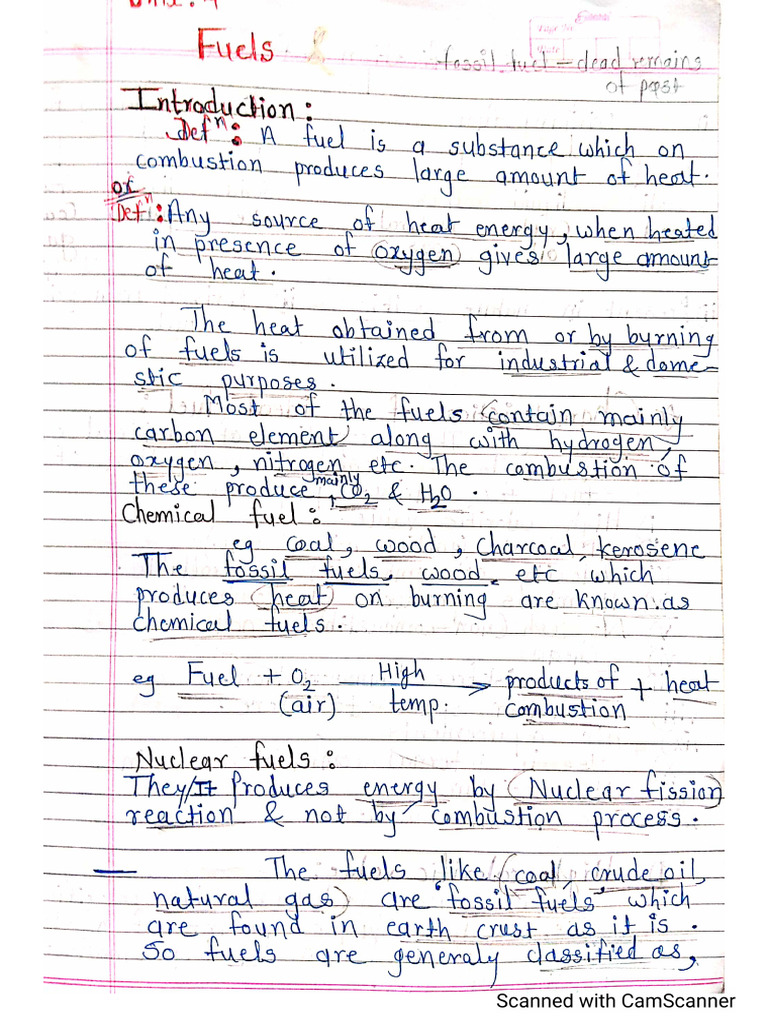 Unit: 4
Fuels
fossil fuel – dead remains
of past
Introduction :
Defⁿ : A fuel is a substance which on
combustion produces large amount of heat.
or
Defⁿ : Any source of heat energy, when heated
in presence of (oxygen) gives large amount
of heat.
The heat obtained from or by burning
of fuels is utilized for industrial & dome-
stic purposes.
Most of the fuels (contain mainly
carbon element) along with hydrogen,
oxygen, nitrogen etc. The combustion of
these produce mainly CO₂ & H₂O.
Chemical fuel :
eg coal, wood, charcoal, kerosene
The fossil fuels, wood etc which
produces (heat) on burning are known as
chemical fuels.
eg Fuel + O₂ (air) High temp. → products of combustion + heat
Nuclear fuels :
They/It Produces energy by (Nuclear fission)
reaction & not by combustion process.
— The fuels like (coal, crude oil,
natural gas) are 'fossil fuels' which
are found in earth crust as it is.
So fuels are generaly classified as,
Scanned with CamScanner